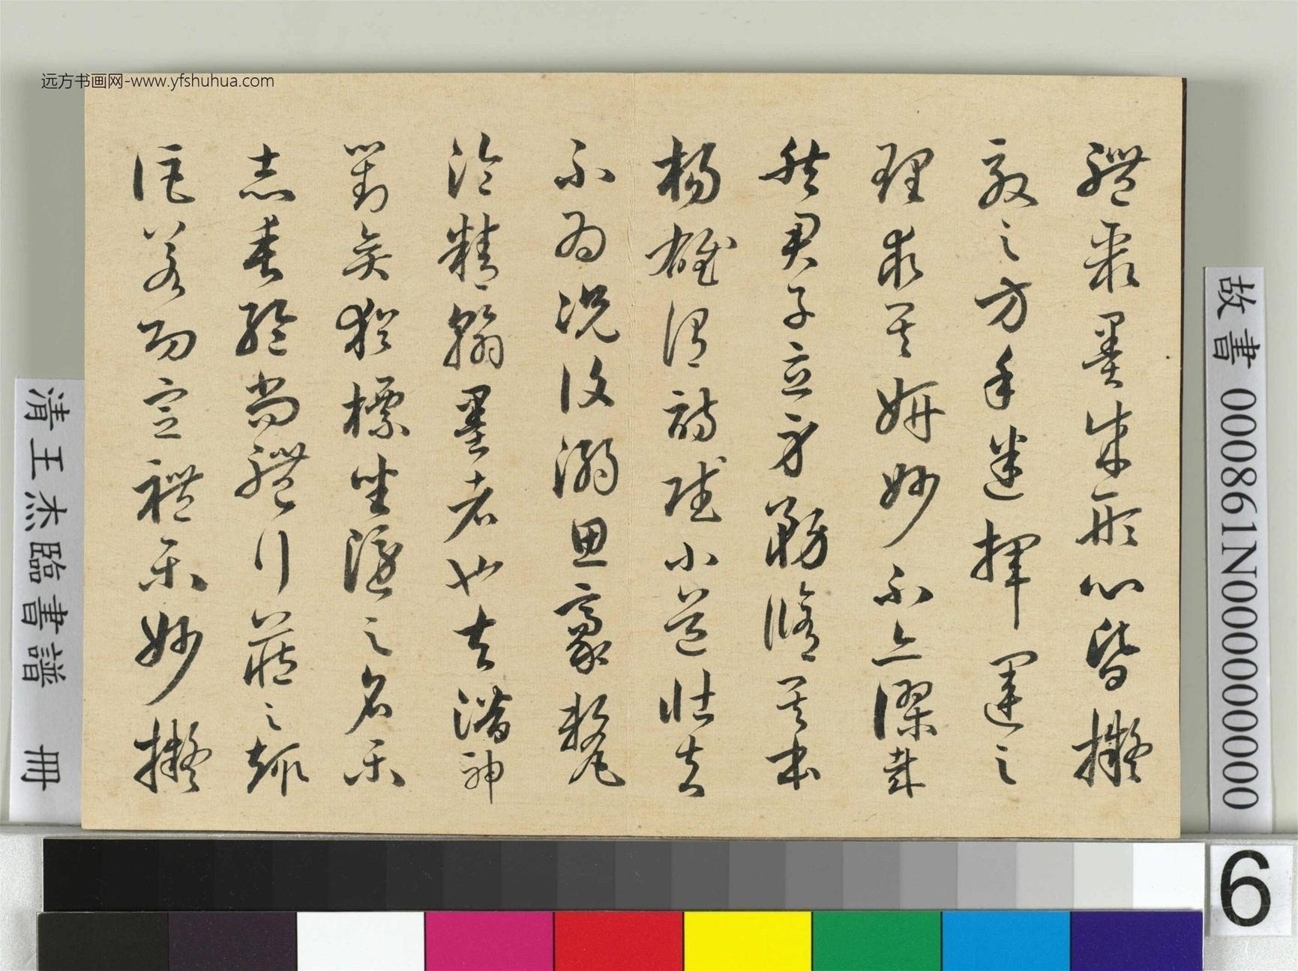 远方书画网-www.yfshuhua.com
體聚墨成形心昏擬
效之方手迷揮運之
理求其妍妙不亦謬哉
然君子立身務脩其本
楊雄謂詩賦小道壯夫
不為況復溺思豪氂
淪精翰墨者也夫潛神
對奕猶標坐隱之名樂
志垂綸尚體行藏之趣
詎若功定禮樂妙擬
故書 000861N000000000
清王杰臨書譜 冊
6